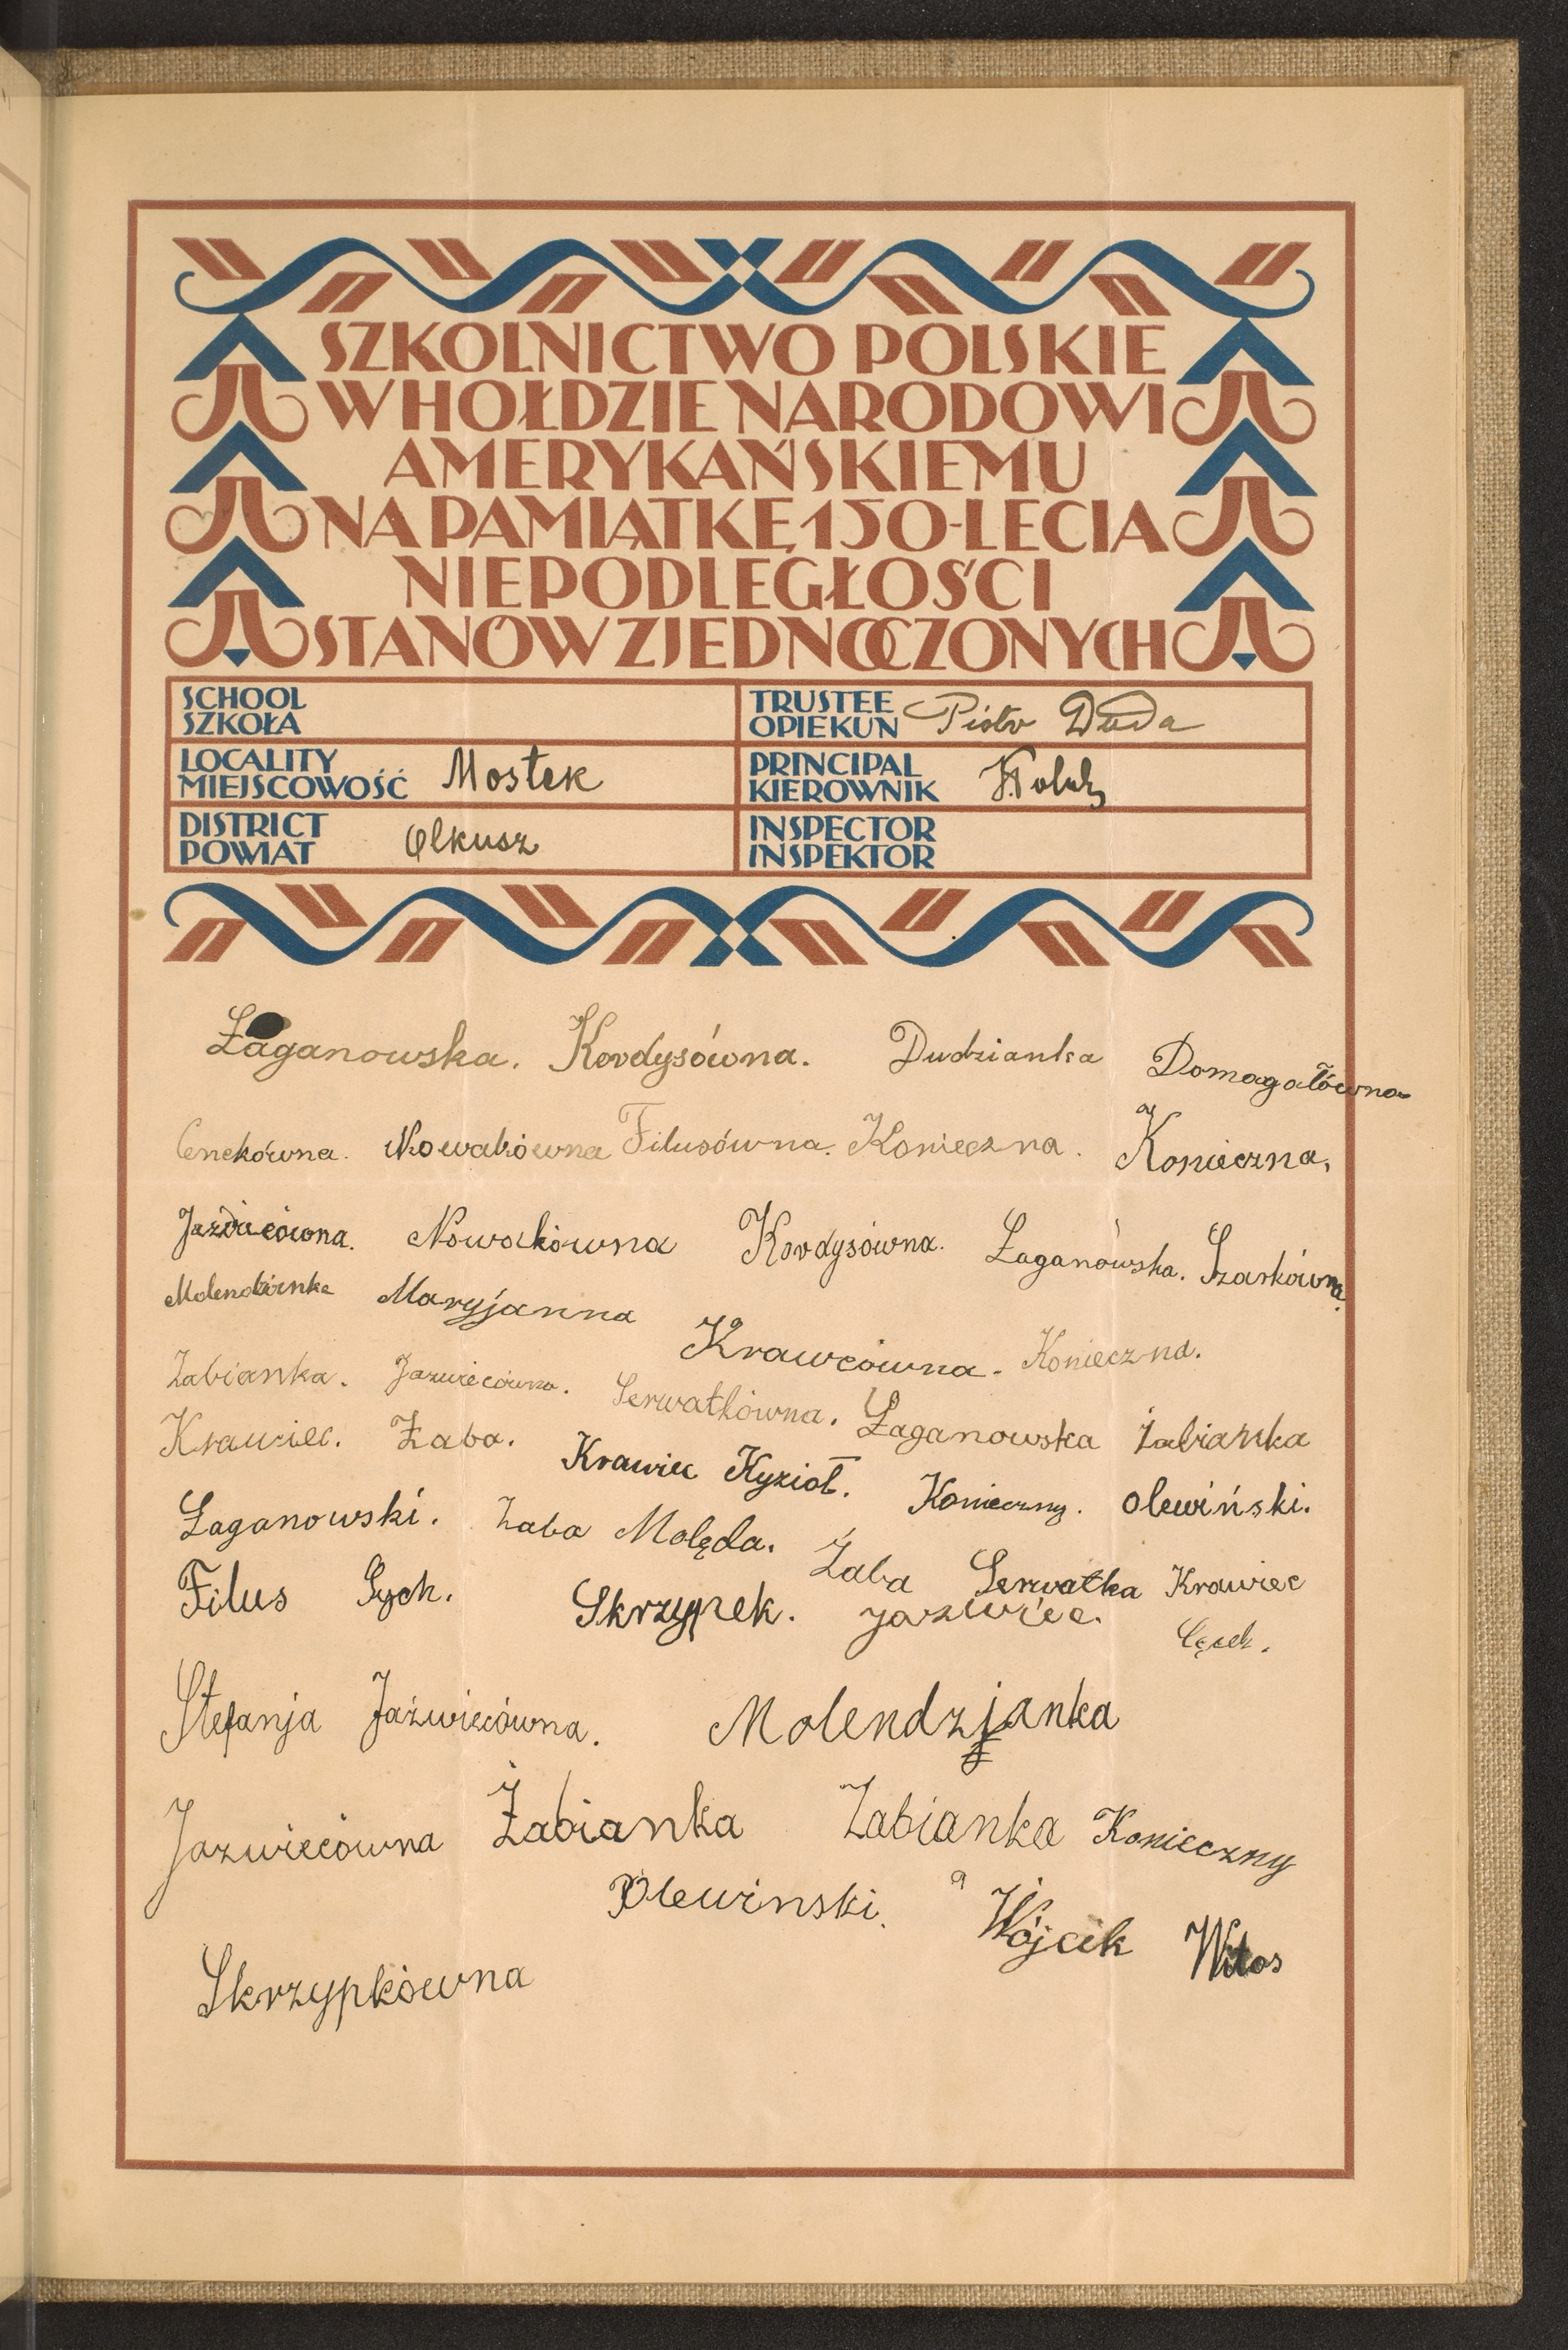 SZKOLNICTWO POLSKIE
W HOŁDZIE NARODOWI
AMERYKAŃSKIEMU
NA PAMIĄTKĘ 150-LECIA
NIEPODLEGŁOŚCI
STANÓW ZJEDNOCZONYCH
SCHOOL
SZKOŁA
TRUSTEE
OPIEKUN Piotr Duda
LOCALITY
MIEJSCOWOŚĆ Mostek
PRINCIPAL
KIEROWNIK
DISTRICT
POWIAT Olkusz
INSPECTOR
INSPEKTOR
Łaganowska. Kordysówna. Dudzianka Domagałówna
Cenekówna. Nowakówna Filusówna. Konieczna. Konieczna.
Nowakówna Kordysówna. Łaganowska. Szarkówna.
Maryjanna Krawcówna. Konieczna.
Żabianka. Jazwiecówna. Serwatkówna. Łaganowska Żabianka
Krawiec. Żaba. Krawiec Kyzioł. Konieczny. Olewiński.
Łaganowski. Żaba Molęda. Żaba Serwatka Krawiec
Filus Sych. Skrzypek. Jazwiec.
Stefanja Jaźwiecówna. Molendzianka
Jazwiecówna Żabianka Żabianka Konieczny
Olewinski. Wójcik Witos
Skrzypkówna